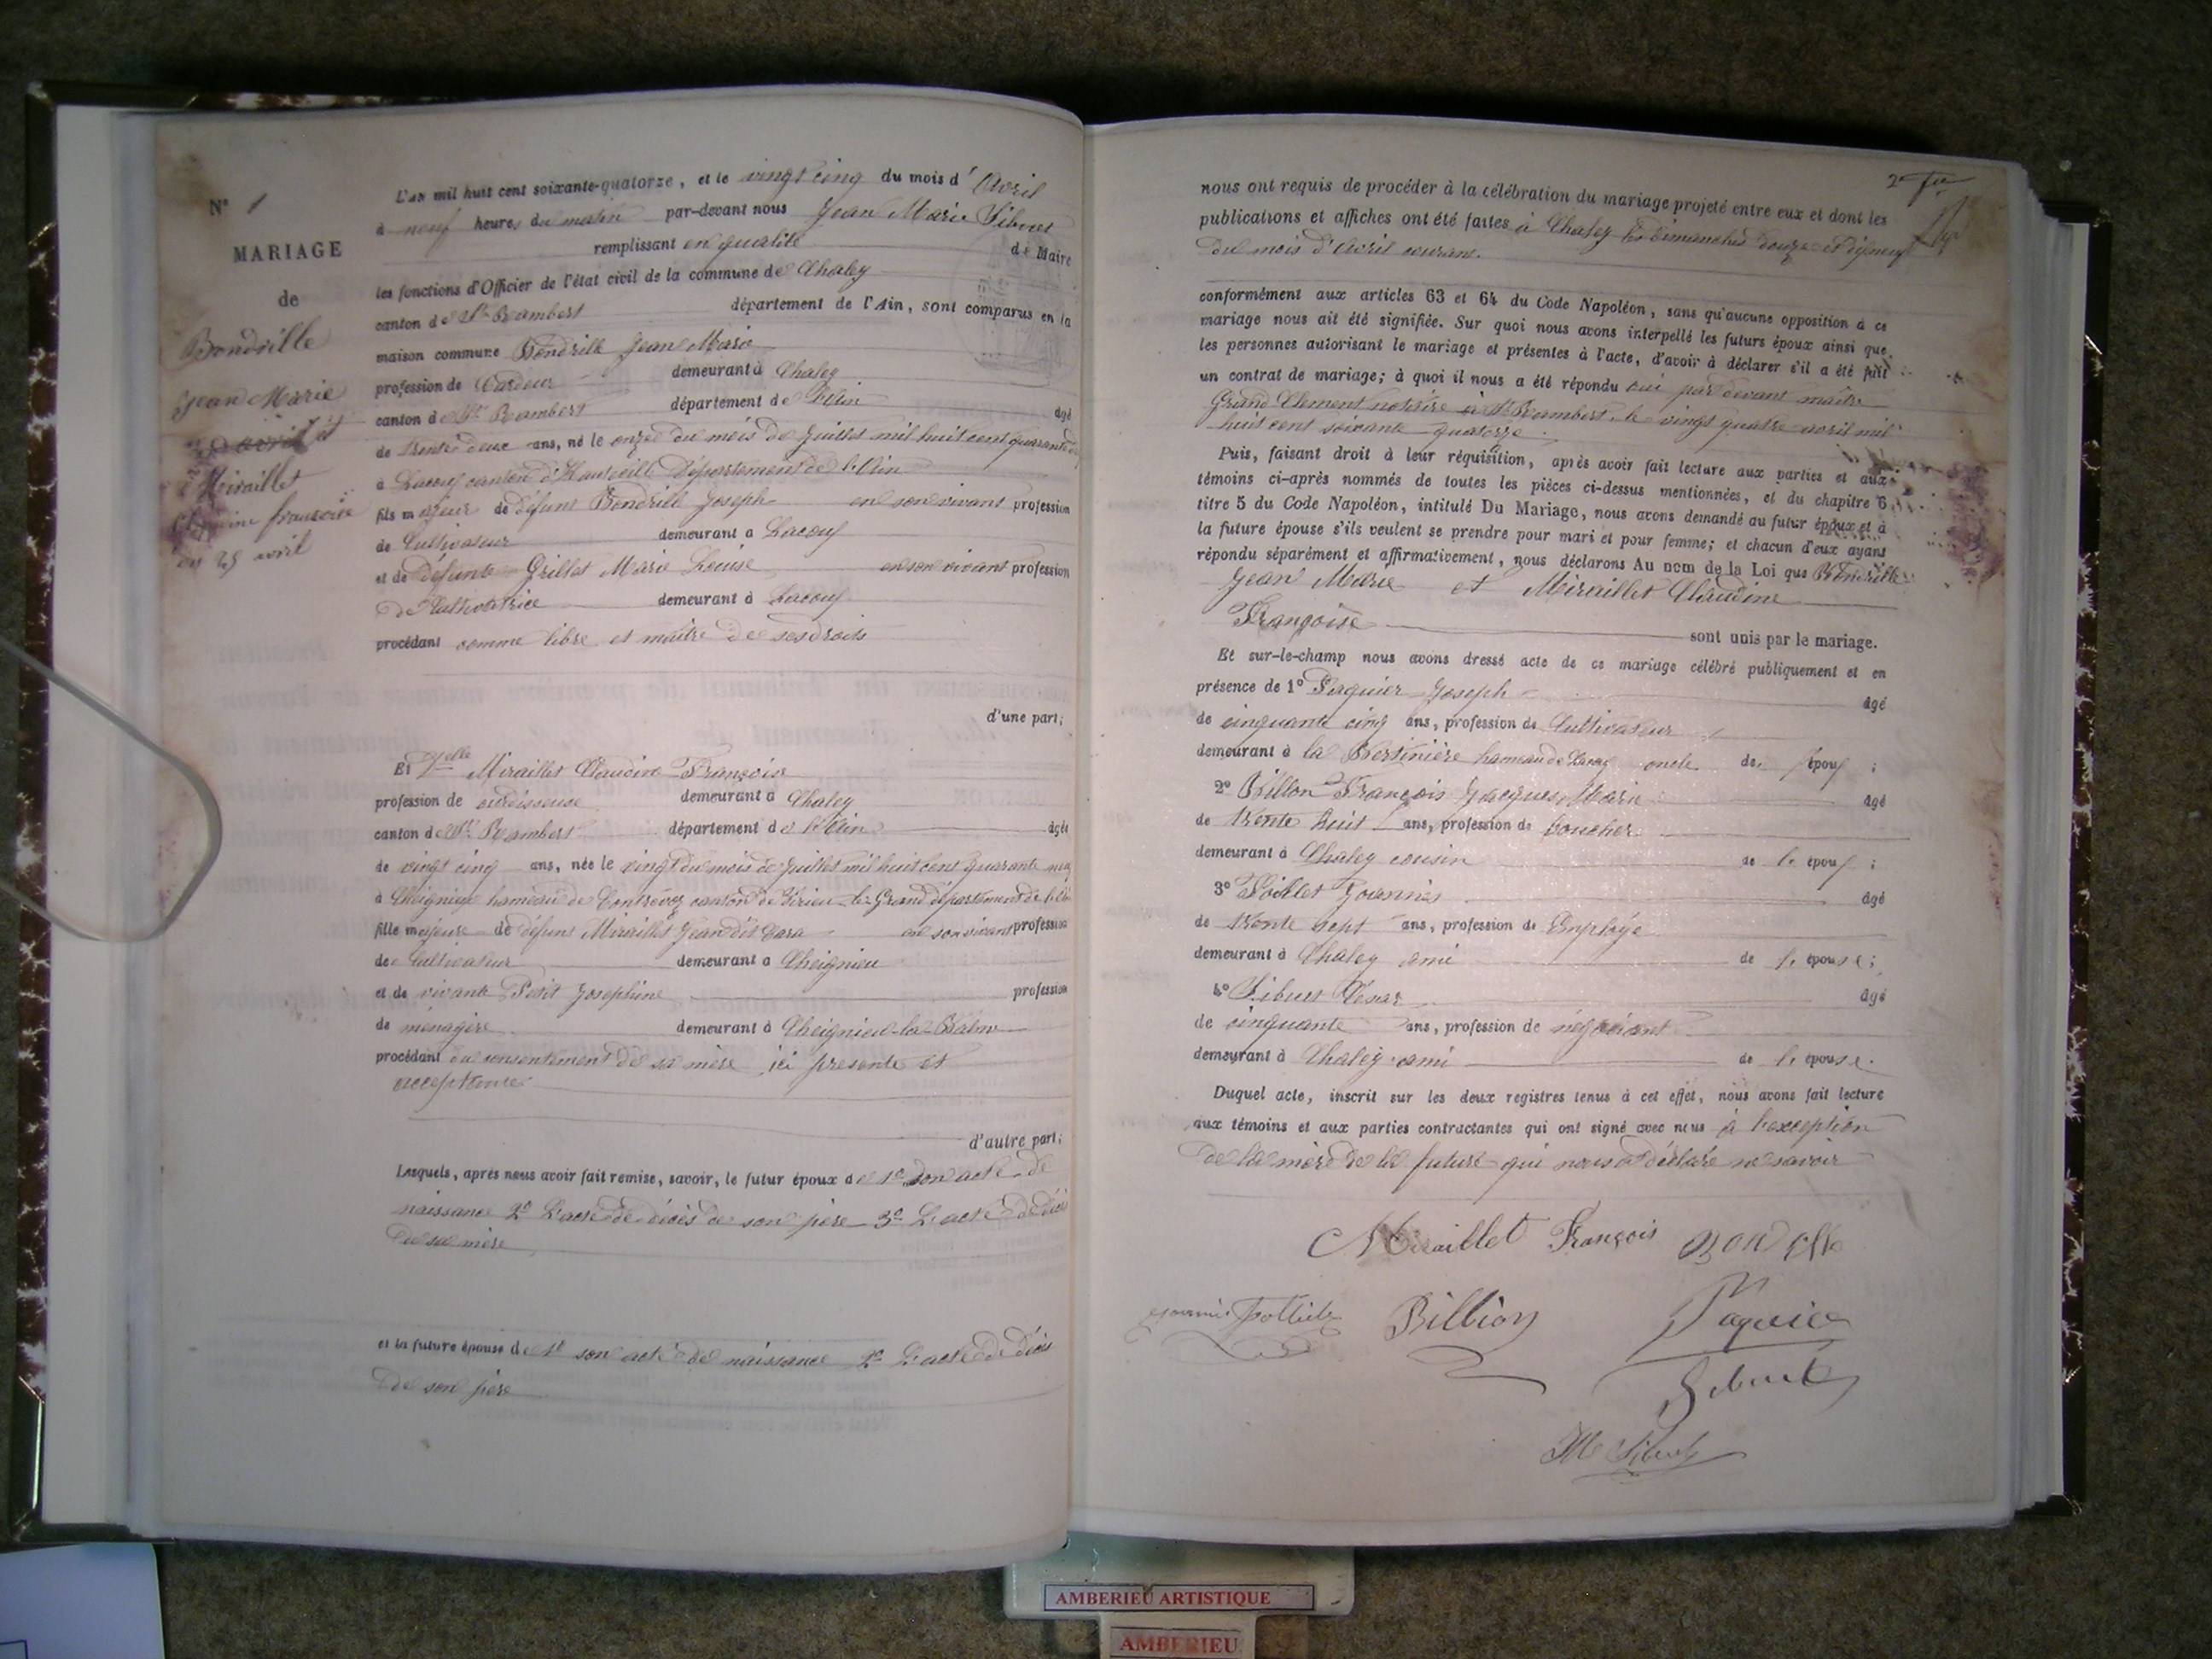 N° 1
MARIAGE
de
Bondrille
Jean Marie
et
Miraillet
Claudine françoise
du 25 avril
L'an mil huit cent soixante-quatorze, et le vingt cinq du mois d'Avril
à neuf heures du matin par-devant nous Jean Marie Sibuet
remplissant en qualité de Maire
les fonctions d'Officier de l'état civil de la commune de Chaley
canton de St Rambert département de l'Ain, sont comparus en la
maison commune Bondrille Jean Marie
profession de Cardeur demeurant à Chaley
canton de St Rambert département de l'Ain âgé
de trente deux ans, né le onze du mois de juillet mil huit cent quarante
à Lacoux canton d'Hauteville département de l'Ain
fils majeur de défunt Bondrille Joseph en son vivant profession
de Cultivateur demeurant à Lacoux
et de défunte Grillet Marie Louise en son vivant profession
de Cultivatrice demeurant à Lacoux
procédant comme libre et maître de ses droits
d'une part;
Et Delle Miraillet Claudine Françoise
profession de ourdisseuse demeurant à Chaley
canton de St Rambert département de l'Ain âgée
de vingt cinq ans, née le vingt du mois de juillet mil huit cent quarante neuf
à Cheignieu hameau de Contrevoz canton de Virieu-le-Grand département de l'Ain
fille majeure de défunt Miraillet Jean dit en son vivant profession
de Cultivateur demeurant à Cheignieu
et de vivante Petit Josephine profession
de ménagère demeurant à Cheignieu-la-Balme
procédant du consentement de sa mère ici présente et
acceptante
d'autre part;
Lesquels, après nous avoir fait remise, savoir, le futur époux de 1° son acte de
naissance 2° L'acte de décès de son père 3° L'acte de décès
de sa mère
et la future épouse de 1° son acte de naissance 2° L'acte de décès
de son père
2e fet
nous ont requis de procéder à la célébration du mariage projeté entre eux et dont les
publications et affiches ont été faites à Chaley les dimanches douze et dix neuf
du mois d'Avril courant.
conformément aux articles 63 et 64 du Code Napoléon, sans qu'aucune opposition à ce
mariage nous ait été signifiée. Sur quoi nous avons interpellé les futurs époux ainsi que
les personnes autorisant le mariage et présentes à l'acte, d'avoir à déclarer s'il a été fait
un contrat de mariage; à quoi il nous a été répondu oui par devant maître
Grand Clement notaire à St Rambert le vingt quatre avril mil
huit cent soixante quatorze.
Puis, faisant droit à leur réquisition, après avoir fait lecture aux parties et aux
témoins ci-après nommés de toutes les pièces ci-dessus mentionnées, et du chapitre 6
titre 5 du Code Napoléon, intitulé Du Mariage, nous avons demandé au futur époux et à
la future épouse s'ils veulent se prendre pour mari et pour femme; et chacun d'eux ayant
répondu séparément et affirmativement, nous déclarons Au nom de la Loi que Bondrille
Jean Marie et Miraillet Claudine
Françoise sont unis par le mariage.
Et sur-le-champ nous avons dressé acte de ce mariage célébré publiquement et en
présence de 1° Paquier Joseph âgé
de cinquante cinq ans, profession de Cultivateur
demeurant à la Bertinière hameau de Lacoux oncle de l'époux;
2° Billon François Jacques Marie âgé
de trente huit ans, profession de boucher
demeurant à Chaley cousin de l'époux;
3° Pollet Joannès âgé
de trente sept ans, profession de Employé
demeurant à Chaley ami de l'épouse;
4° Sibuet César âgé
de cinquante ans, profession de négociant
demeurant à Chaley ami de l'épouse.
Duquel acte, inscrit sur les deux registres tenus à cet effet, nous avons fait lecture
aux témoins et aux parties contractantes qui ont signé avec nous à l'exception
de la mère de la future qui nous a déclaré ne savoir
Miraillet François
Billion
Paquier
Sibuet
JM Sibuet
AMBERIEU ARTISTIQUE
AMBERIEU